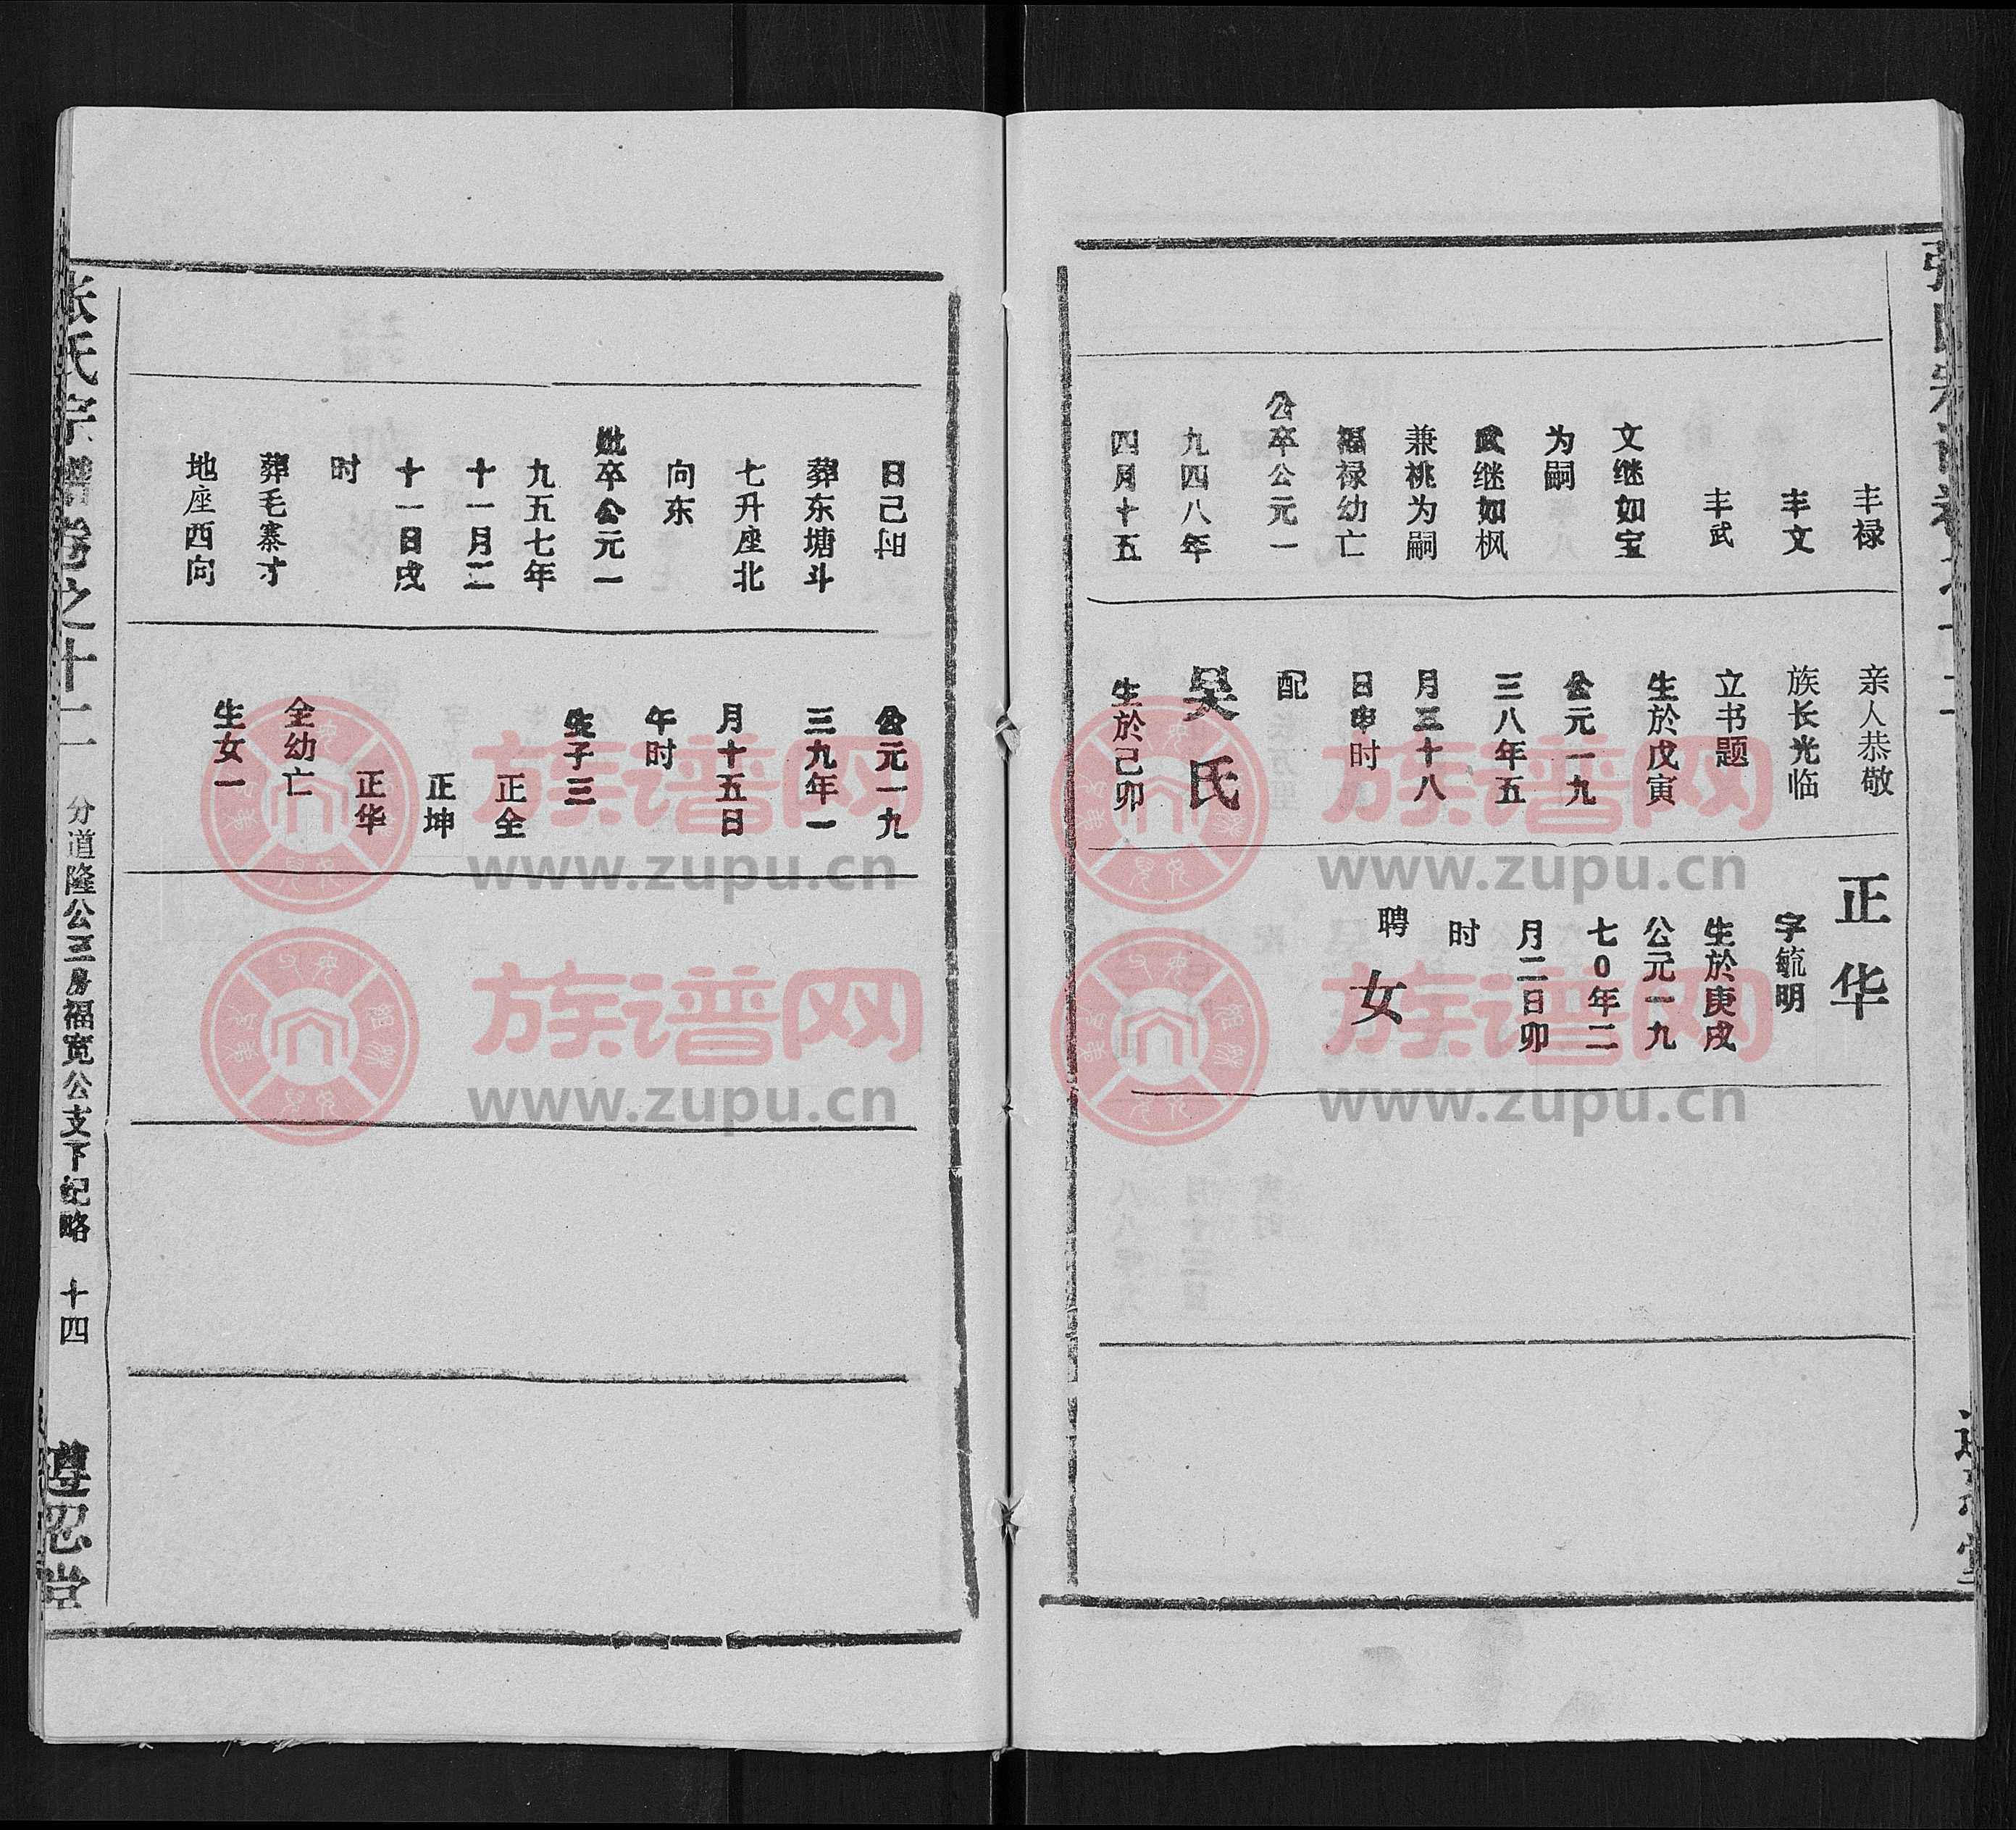 丰禄
丰文
丰武
文继如宝
为嗣
武继如枫
兼祧为嗣
福禄幼亡
公卒公元一
九四八年
四月十五
亲人恭敬
族长光临
立书题
生於戊寅
公元一九
三八年五
月三十八
日申时
配
吴氏
生於己卯
正华
字毓明
生於庚戌
公元一九
七0年二
月二日卯
时
聘
女
日己时
葬东塘斗
七升座北
向东
妣卒公元一
九五七年
十一月二
十一日戌
时
葬毛寨寸
地座西向
公元一九
三九年一
月十五日
午时
生子三
正全
正坤
正华
全幼亡
生女一
张氏宗谱卷之十二
分道隆公三房福宽公支下纪略
十四
遵忍堂
族谱网
www.zupu.cn
族谱网
www.zupu.cn
族谱网
www.zupu.cn
族谱网
www.zupu.cn